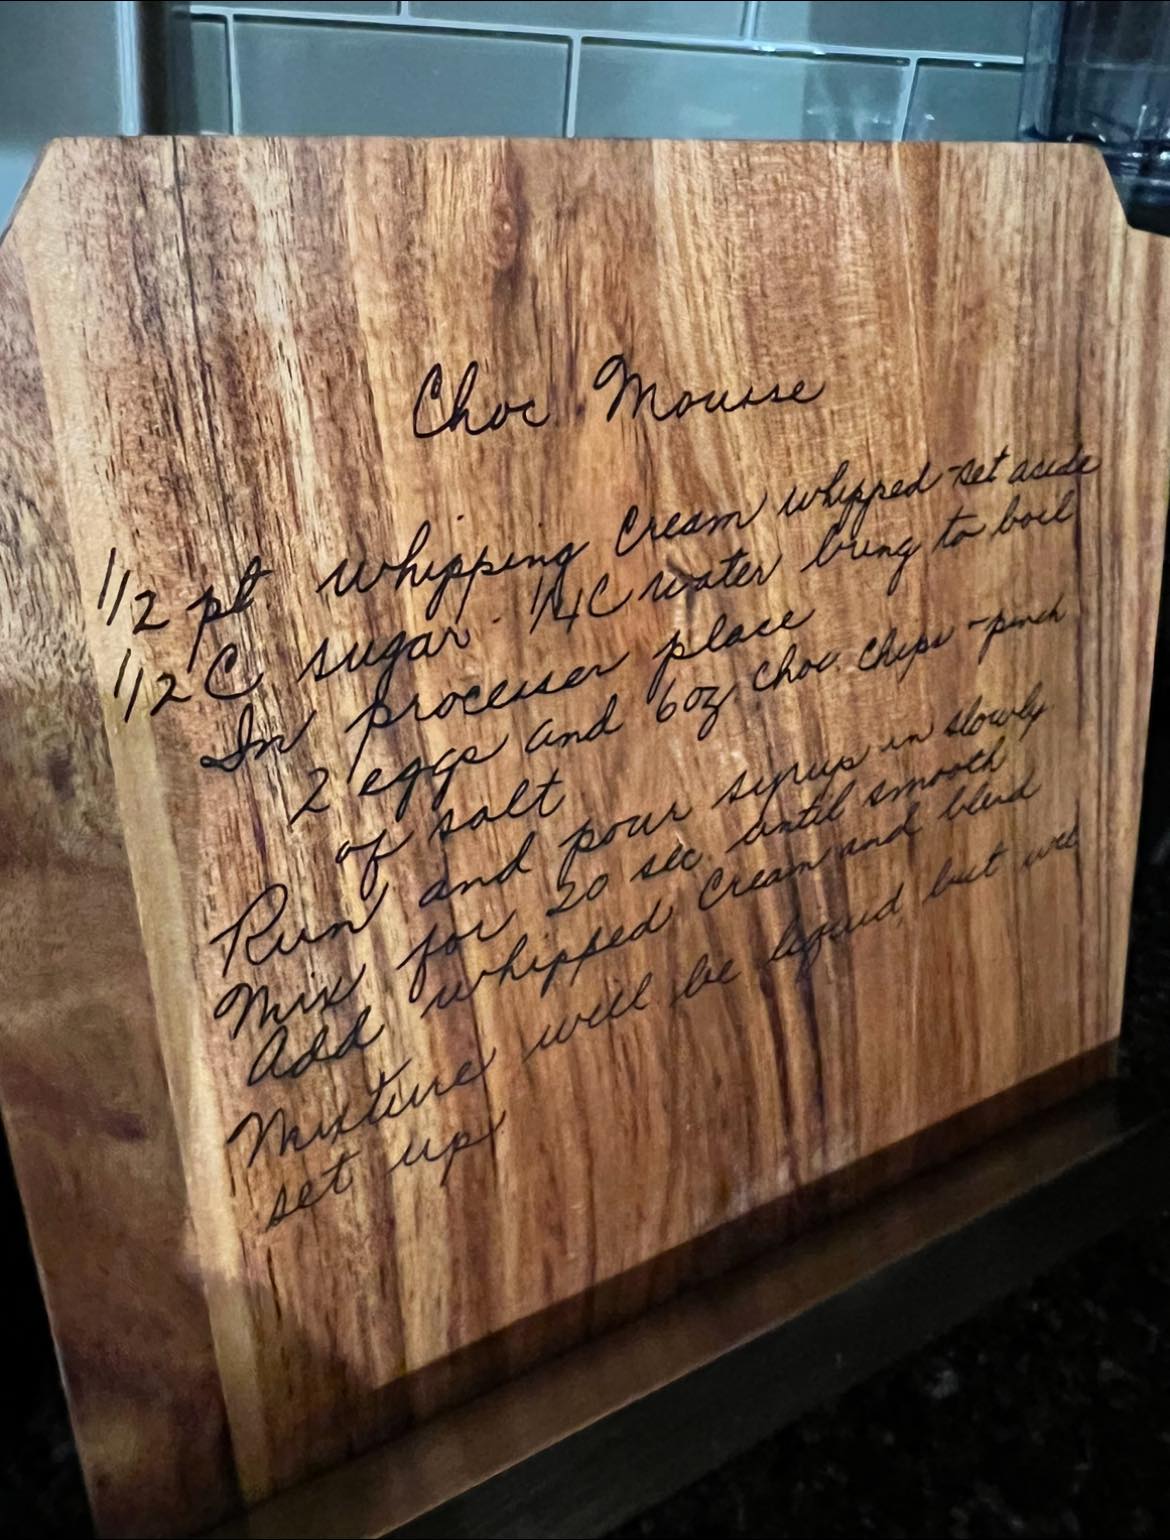 Choc Mousse
1/2 pt whipping cream whipped - set aside
1/2 C sugar - 1/4 C water bring to boil
In processer place
2 eggs and 6 oz choc chips - pinch
of salt
Run and pour syrup in slowly
Mix for 20 sec until smooth
Add whipped cream and blend
Mixture will be liquid but will
set up